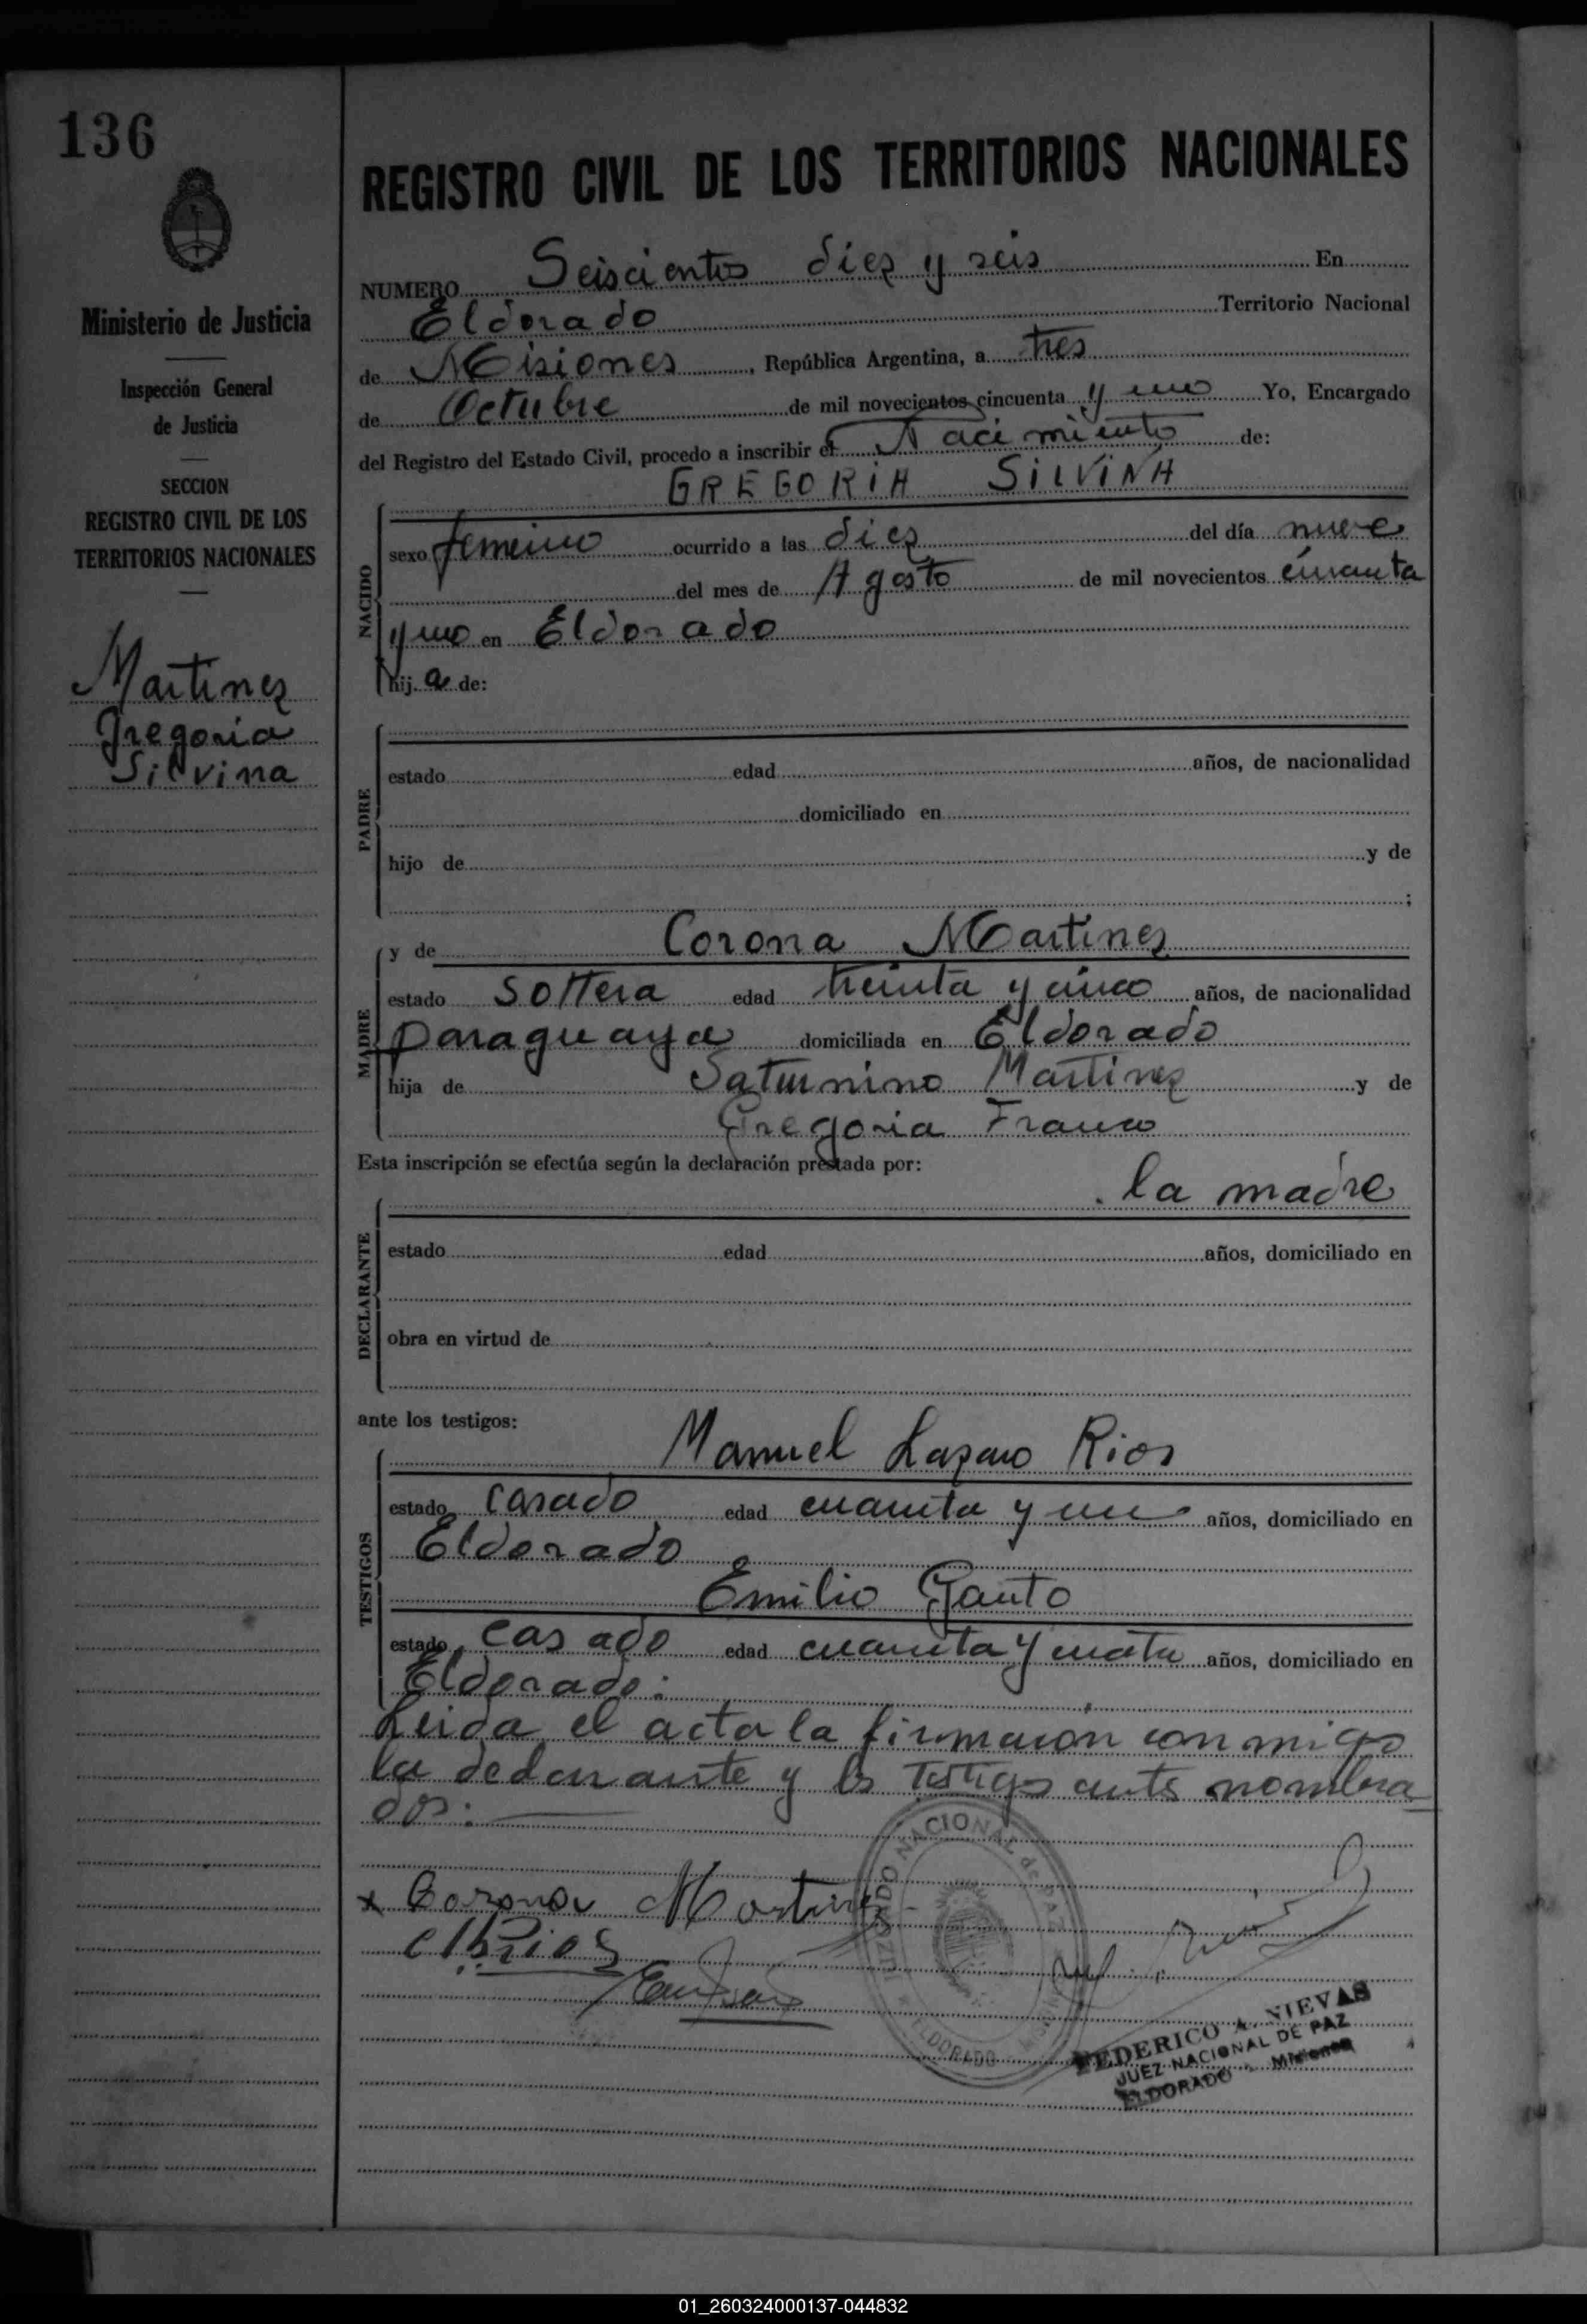 136
REGISTRO CIVIL DE LOS TERRITORIOS NACIONALES
Ministerio de Justicia
Inspección General
de Justicia
SECCION
REGISTRO CIVIL DE LOS
TERRITORIOS NACIONALES
Martinez
Gregoria
Silvina
NUMERO Seiscientos diez y seis En
Eldorado Territorio Nacional
de Misiones, República Argentina, a tres
de Octubre de mil novecientos cincuenta y uno Yo, Encargado
del Registro del Estado Civil, procedo a inscribir el Nacimiento de:
GREGORIA SILVINA
NACIDO
sexo femenino ocurrido a las diez del día nueve
del mes de Agosto de mil novecientos cincuenta
y uno en Eldorado
hij a de:
PADRE
estado edad años, de nacionalidad
domiciliado en
hijo de y de
;
MADRE
y de Corona Martinez
estado soltera edad treinta y cinco años, de nacionalidad
paraguaya domiciliada en Eldorado
hija de Saturnino Martinez y de
Gregoria Franco
Esta inscripción se efectúa según la declaración prestada por:
la madre
DECLARANTE
estado edad años, domiciliado en
obra en virtud de
ante los testigos:
TESTIGOS
Manuel Lazaro Rios
estado casado edad cuarenta y un años, domiciliado en
Eldorado
Emilio Gauto
estado casado edad cuarenta y cuatro años, domiciliado en
Eldorado.
Leida el acta la firmaron conmigo
la declarante y los testigos antes nombra
dos.
x Corona Martinez
Rios
JUZGADO NACIONAL de PAZ
ELDORADO
FEDERICO A. NIEVAS
JUEZ NACIONAL DE PAZ
ELDORADO - Misiones
01_260324000137-044832